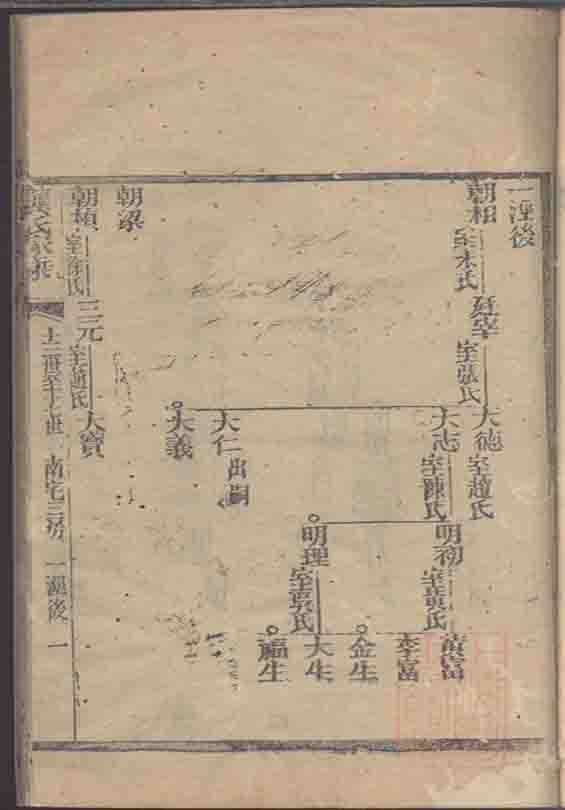 一湮後
朝相 室朱氏
廷宰 室張氏
大德 室趙氏
大志 室陳氏
明初 室黃氏
黃富
李富
金生
明理 室張氏
大生
福生
大仁 出嗣
大義
朝梁
朝楨 室徐氏
三元 室趙氏
大寶
氏家乘
十二世至十六世 南宅三房 一湮後 一